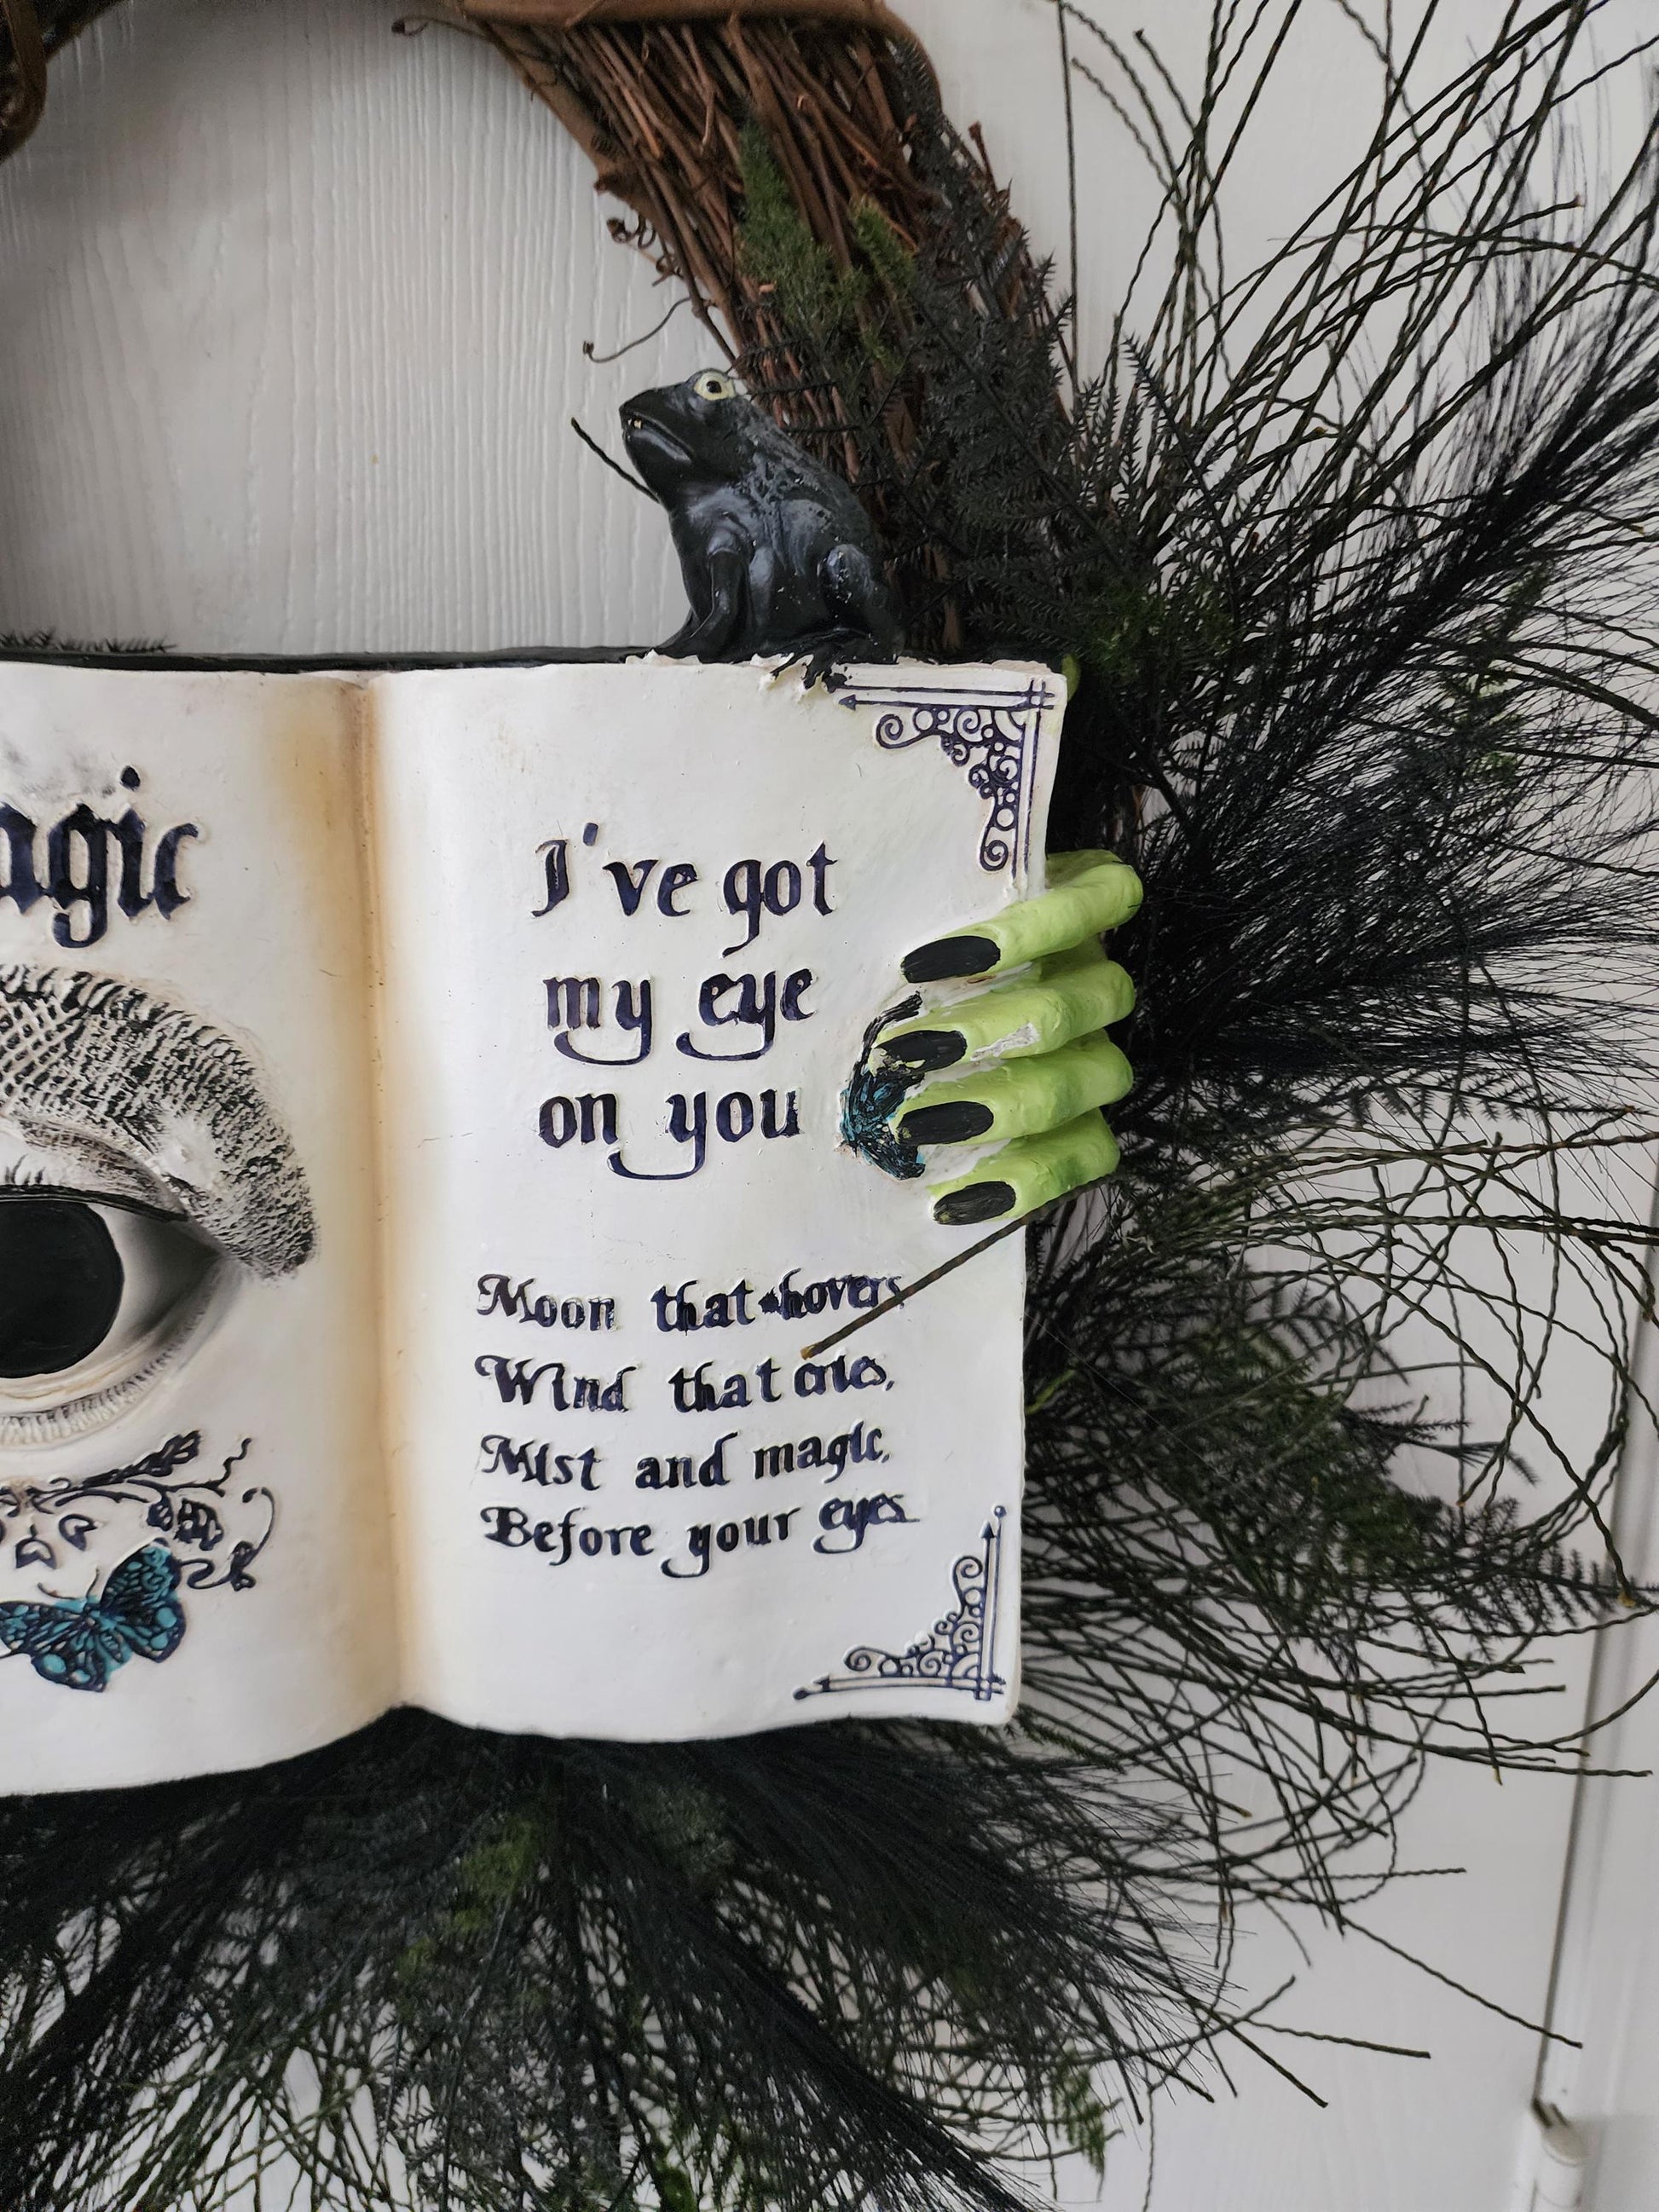 agic
I've got
my eye
on you
Moon that hovers,
Wind that cries,
Mist and magic,
Before your eyes